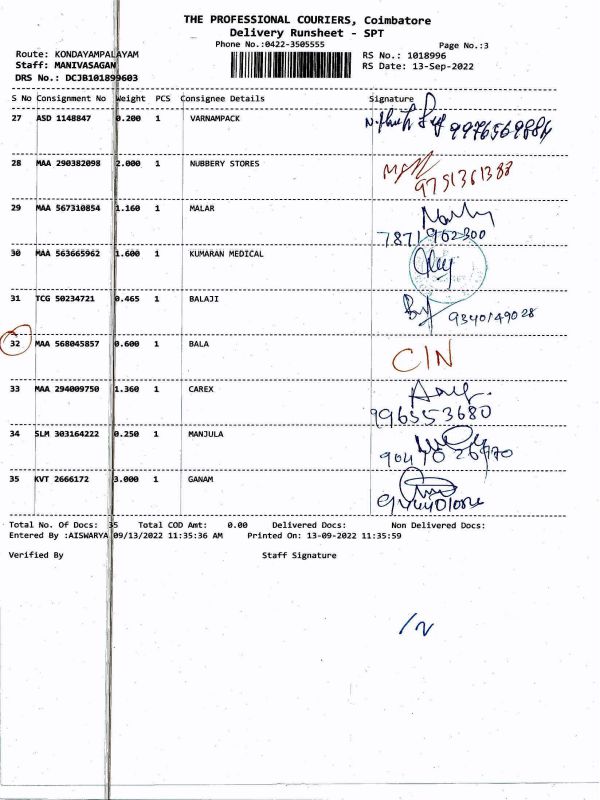 THE PROFESSIONAL COURIERS, Coimbatore
Delivery Runsheet - SPT
Phone No.:0422-3505555 Page No.:3
Route: KONDAYAMPALAYAM RS No.: 1018996
Staff: MANIVASAGAN RS Date: 13-Sep-2022
DRS No.: DCJB101899603
S No Consignment No Weight PCS Consignee Details Signature
27 ASD 1148847 0.200 1 VARNAMPACK
28 MAA 290382098 2.000 1 NUBBERY STORES
9751361383
29 MAA 567310854 1.160 1 MALAR
7871902300
30 MAA 563665962 1.600 1 KUMARAN MEDICAL
31 TCG 50234721 0.465 1 BALAJI
9340149028
32 MAA 568045857 0.600 1 BALA
CIN
33 MAA 294009750 1.360 1 CAREX
9965553680
34 SLM 303164222 0.250 1 MANJULA
35 KVT 2666172 3.000 1 GANAM
Total No. Of Docs: 35 Total COD Amt: 0.00 Delivered Docs: Non Delivered Docs:
Entered By :AISWARYA 09/13/2022 11:35:36 AM Printed On: 13-09-2022 11:35:59
Verified By Staff Signature